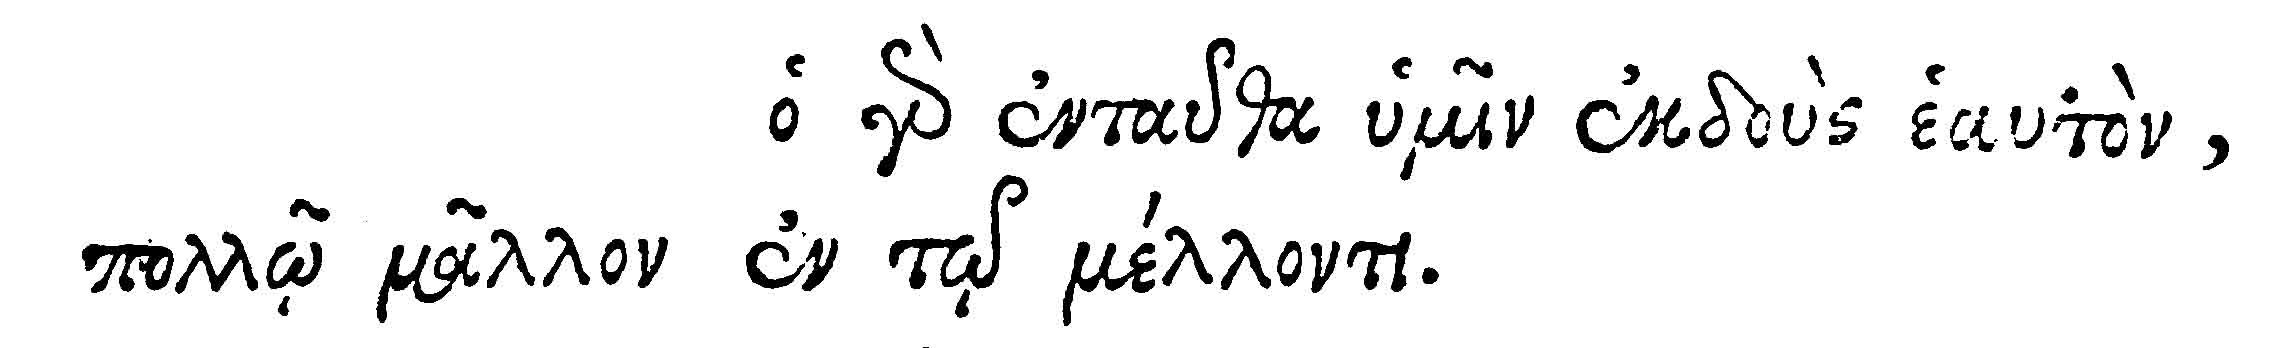 ὁ γὰρ ἐνταῦθα ὑμῖν ἐκδοὺς ἑαυτὸν,
πολλῷ μᾶλλον ἐν τῷ μέλλοντι.